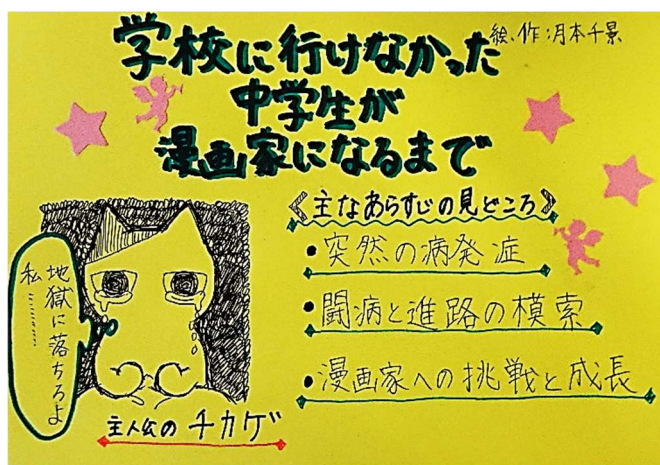 学校に行けなかった
中学生が
漫画家になるまで
絵、作:月本千景
《主なあらすじの見どころ》
・突然の病発症
・闘病と進路の模索
・漫画家への挑戦と成長
地獄に落ちろよ
私…………
主人公のチカゲ